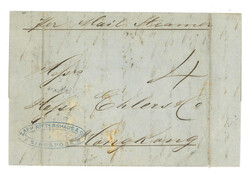 Per Mail Steamer
4
Messrs
Hesse Ehlers & Co
Hongkong